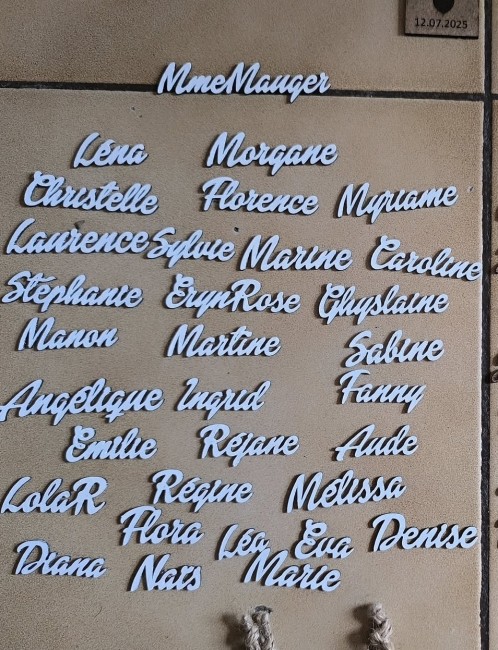 12.07.2025
MmeMauger
Léna Morgane
Christelle Florence Myriame
Laurence Sylvie Marine Caroline
Stéphanie ErynRose Ghyslaine
Manon Martine Sabine
Angélique Ingrid Fanny
Emilie Réjane Aude
LolaR Régine Mélissa
Flora Léa Eva Denise
Diana Naïs Marie